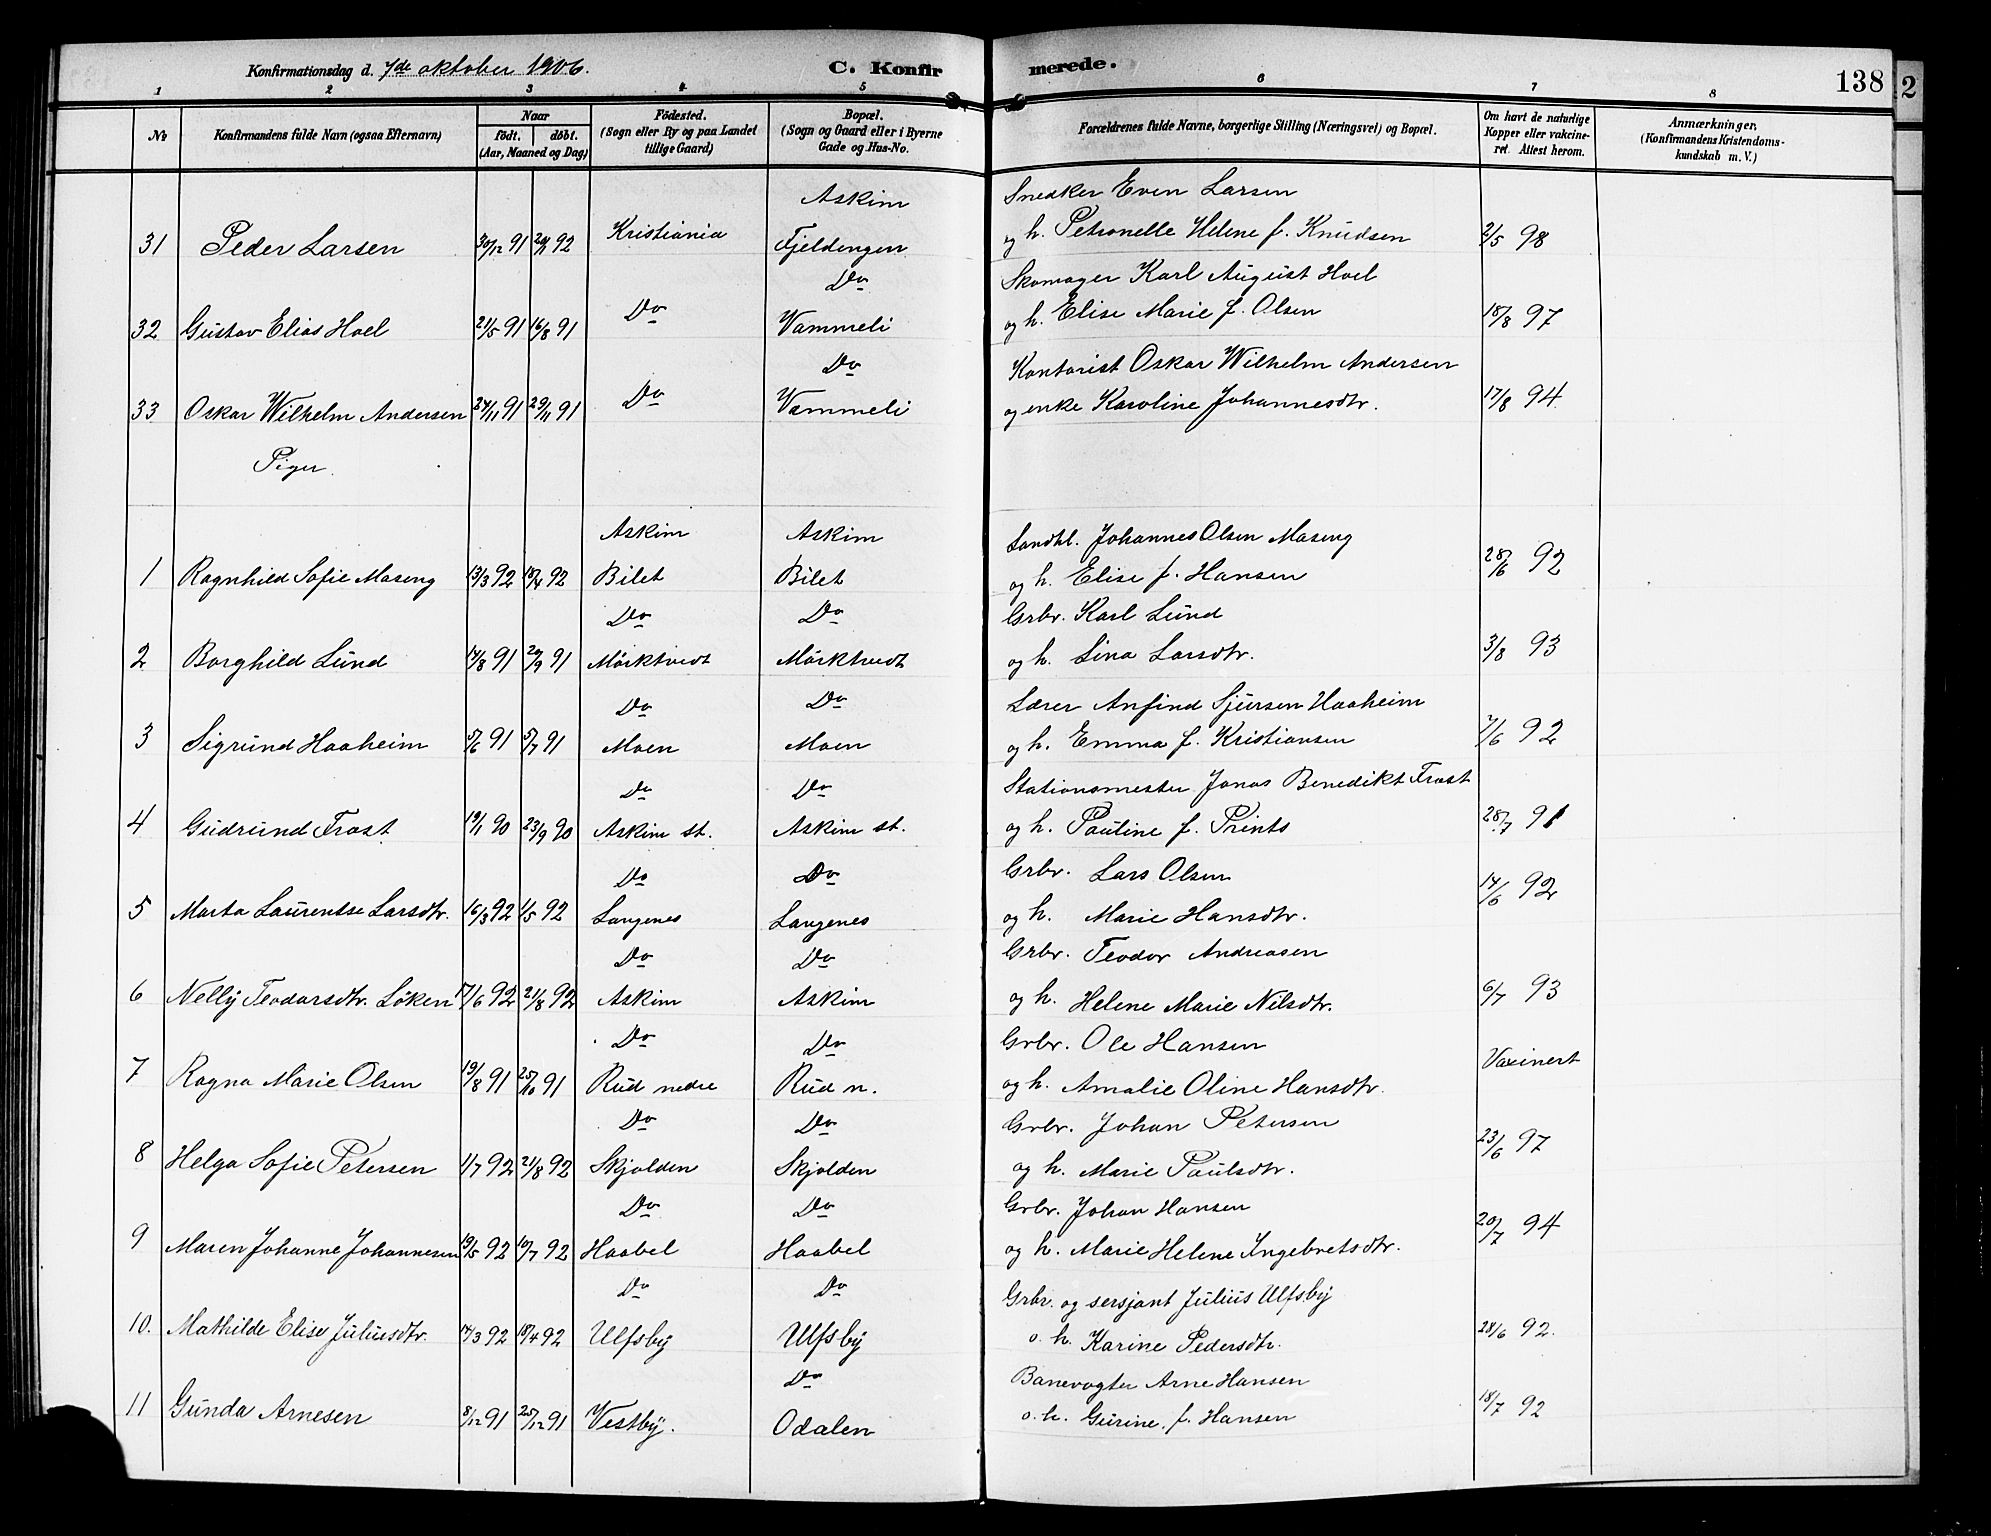 Konfirmationsdag d. 7de oktober 1906. C. Konfir merede. 138 2
1 2 3 4 5 6 7 8
No Konfirmandens fulde Navn (ogsaa Efternavn) Naar födt. döbt. (Aar, Maaned og Dag) Födested. (Sogn eller By og paa Landet tillige Gaard) Bopæl. (Sogn og Gaard eller i Byerne Gade og Hus-No. Forældrenes fulde Navne, borgerlige Stilling (Næringsvei) og Bopæl. Om havt de naturlige Kopper eller vakcineret. Attest herom. Anmærkninger. (Konfirmandens Kristendomskundskab m. V.)
Askim Snedker Even Larsen
31 Peder Larsen 30/12 91 92 Kristiania Fjeldengen og h. Petronelle Helene f. Knudsen 2/5 98
Do Skomager Karl August Hoel
32 Gustav Elias Hoel 21/5 91 16/8 91 Do Vammeli og h. Elise Marie f. Olsen 18/8 97
Do Kontorist Oskar Wilhelm Andersen
33 Oskar Wilhelm Andersen 24/11 91 29/11 91 Do Vammeli og enke Karoline Johannesdtr. 17/8 94
Piger.
Askim Askim Landhl. Johannes Olsen Maseng
1 Ragnhild Sofie Maseng 13/3 92 18/4 92 Bilet Bilet og h. Elise f. Hansen 28/6 92
Do Do Grbr. Karl Lund
2 Borghild Lund 14/8 91 20/9 91 Mörktvedt Mörktvedt og h. Lina Larsdtr. 3/8 93
Do Do Lærer Anfind Sjursen Haaheim
3 Sigrund Haaheim 5/6 91 5/7 91 Moen Moen og h. Emma f. Kristiansen 7/6 92
Do Do Stationsmester Jonas Benedikt Frost
4 Gudrund Frost 19/1 90 23/9 90 Askim st. Askim st. og h. Pauline f. Prints 28/7 91
Do Do Grbr. Lars Olsen
5 Marta Laurentse Larsdtr. 16/3 92 1/5 92 Langenes Langenes og h. Marie Hansdtr. 14/6 92
Do Do Grbr. Teodor Andreasen
6 Nelly Teodorsdtr. Löken 17/6 92 21/8 92 Askim Askim og h. Helene Marie Nilsdtr. 6/7 93
Do Do Grbr. Ole Hansen
7 Ragna Marie Olsen 19/8 91 25/10 91 Rud nedre Rud n. og h. Amalie Oline Hansdtr. Vaxinert
Do Do Grbr. Johan Petersen
8 Helga Sofie Petersen 1/7 92 21/8 92 Skjolden Skjolden og h. Marie Paulsdtr. 23/6 97
Do Do Grbr. Johan Hansen
9 Maren Johanne Johannesen 19/5 92 10/7 92 Haabel Haabel og h. Marie Helene Ingebretsdtr. 20/7 94
Do Do Grbr. og sersjant Julius Ulfsby
10. Mathilde Elise Juliusdtr. 14/3 92 18/4 92 Ulfsby Ulfsby o. h. Karine Pedersdtr. 28/6 92.
Do Banevogter Arne Hansen
11 Gunda Arnesen 8/12 91 25/12 91 Vestby. Odalen o. h. Gurine f. Hansen 18/7 92